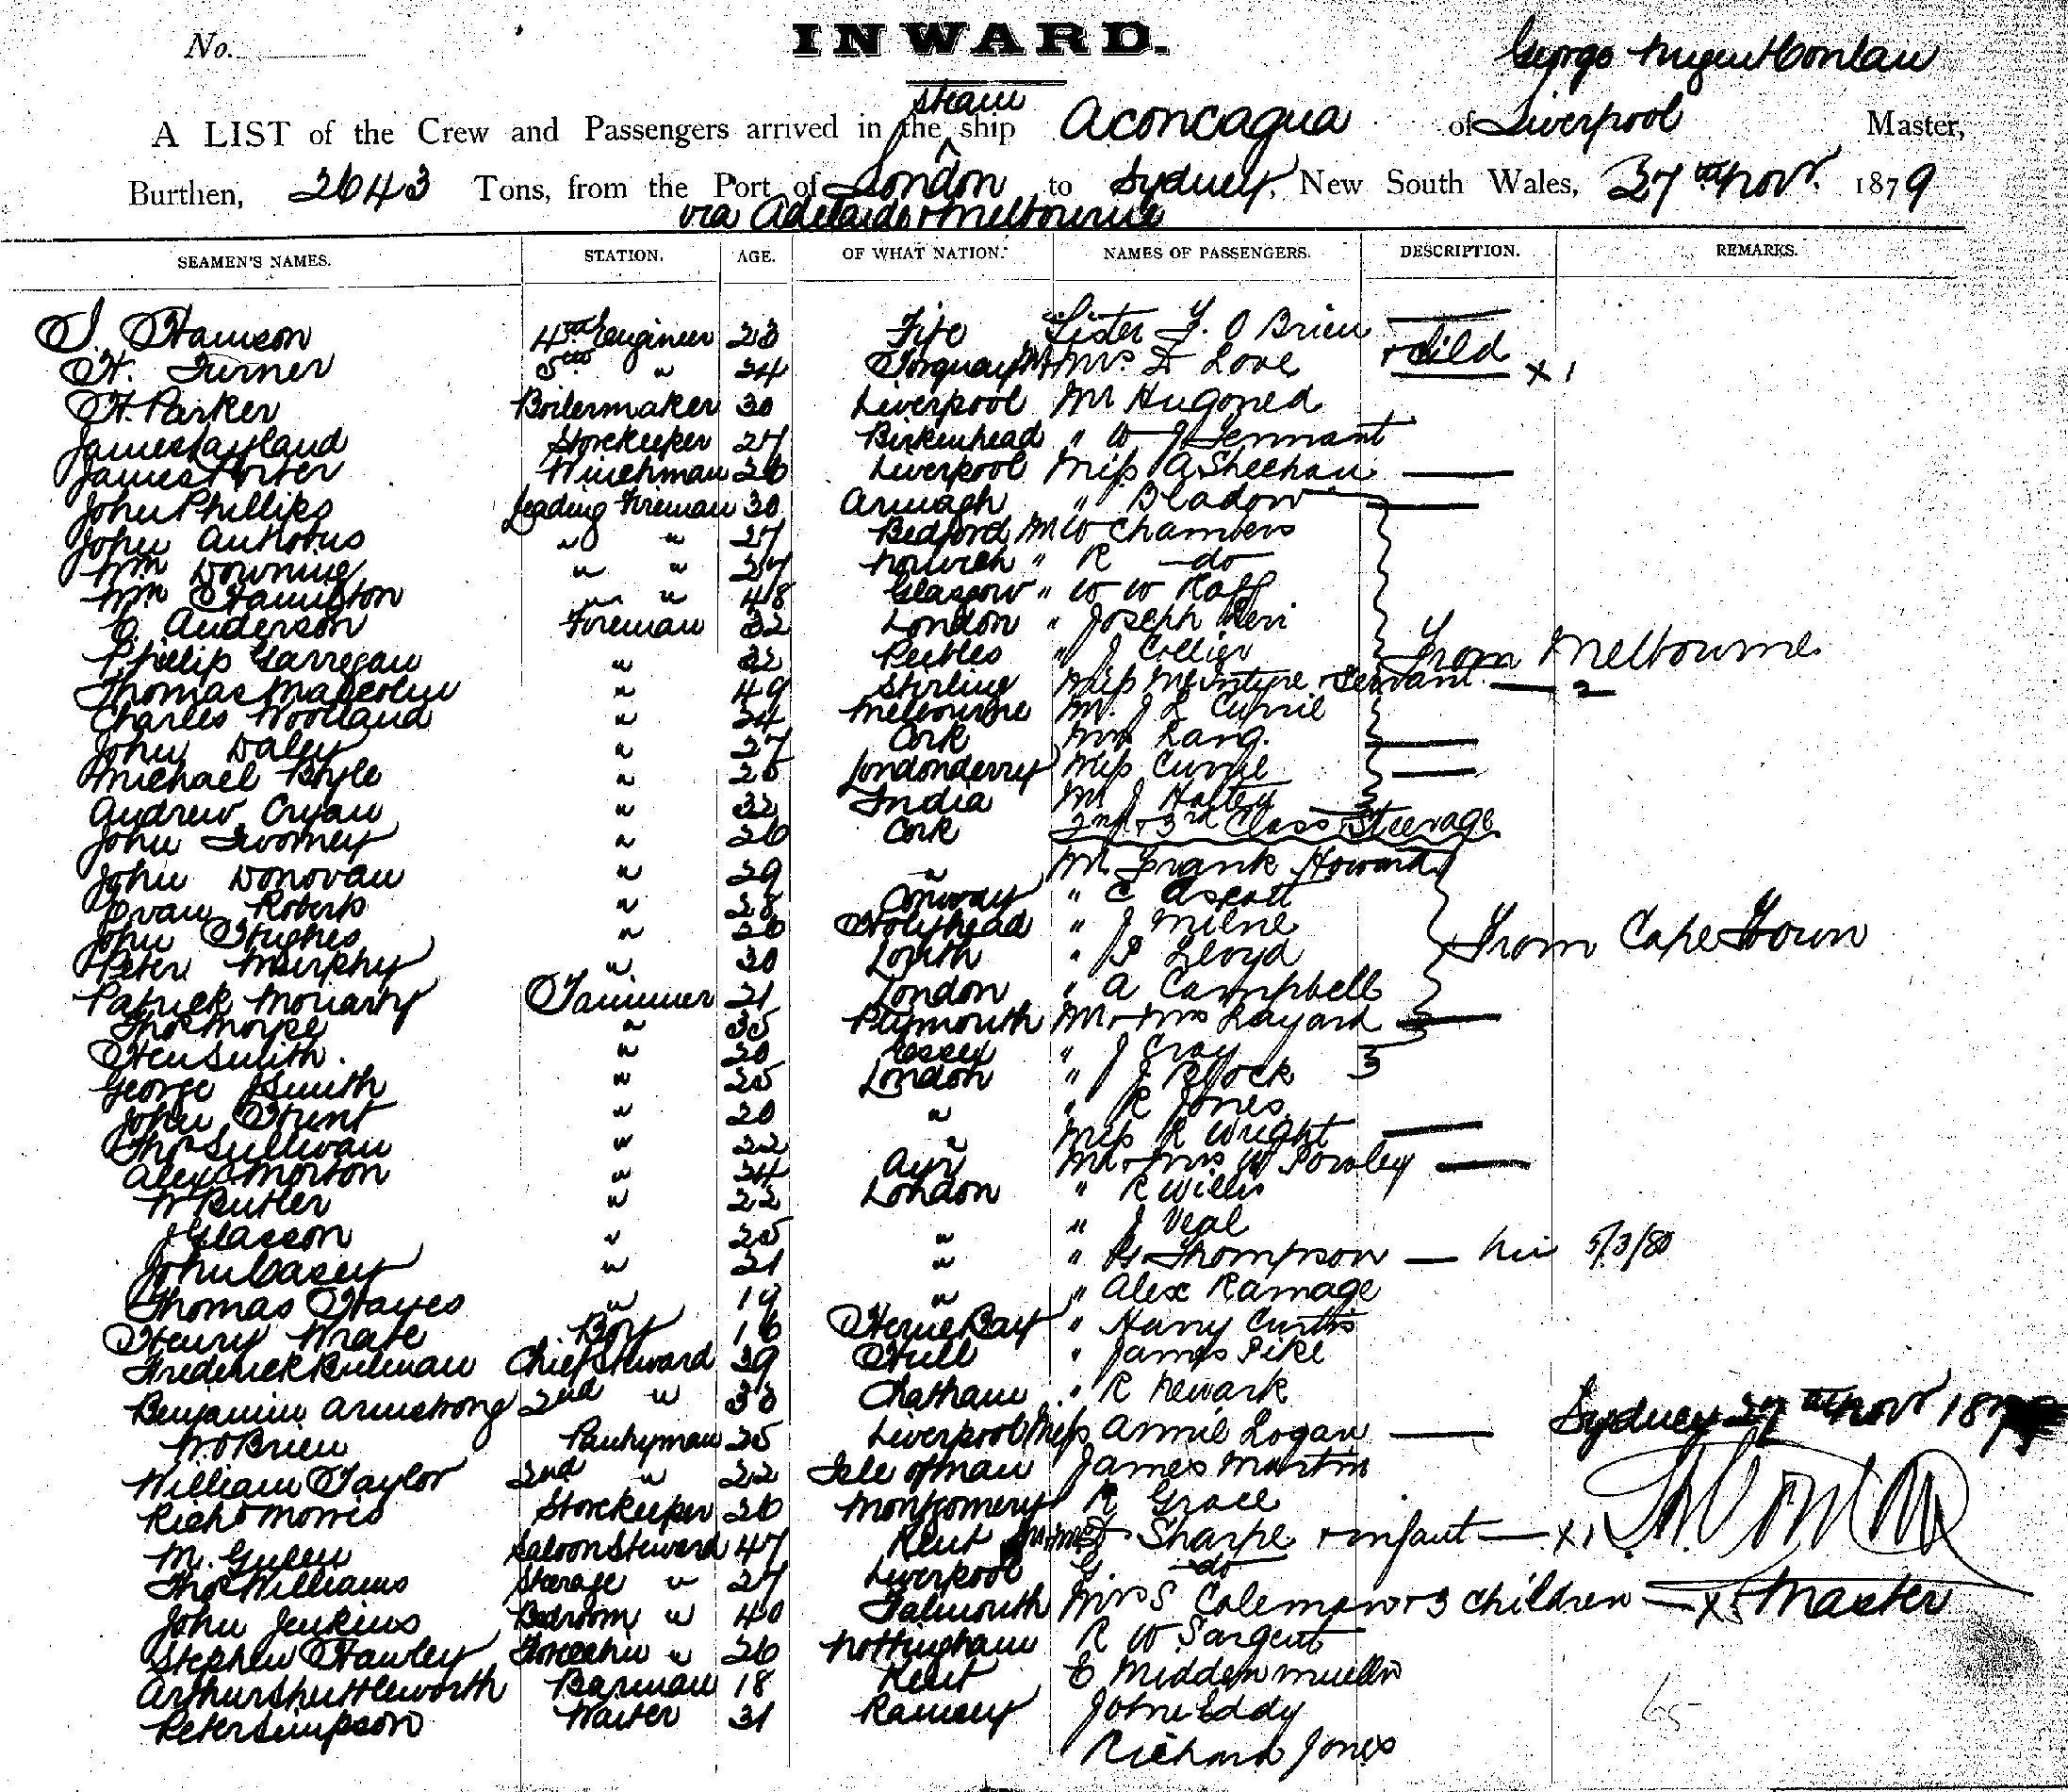 No.
INWARD.
George Nugent Conlan
A LIST of the Crew and Passengers arrived in the steam ship Aconcagua of Liverpool Master,
Burthen, 2643 Tons, from the Port of London to Sydney, New South Wales, 27th Novr 1879
via Adelaide & Melbourne
SEAMEN'S NAMES. STATION. AGE. OF WHAT NATION. NAMES OF PASSENGERS. DESCRIPTION. REMARKS.
4th Engineer 23 Fife Sister F. O Brien
H. Turner 5th " 24 Torquay Mr & Mrs Love & Child x 1
H. Parker Boilermaker 30 Liverpool Mr Hugoned
James Layland Storekeeper 27 Birkenhead " W J Tennant
James Porter Winchman 26 Liverpool Miss A Sheehan
John Phillips Leading Fireman 30 Armagh " Bladow
John " " 27 Bedford M W Chambers
Wm Downing " " 27 Norwich " R do
Wm Hamilton " " 48 Glasgow " W W Raff
Anderson Fireman 32 London " Joseph Levi
Philip Garregan " 22 Peebles " J Collier From Melbourne
Thomas Malcolm " 49 Stirling Miss McIntyre & Servant 2
Charles Woodland " 24 Melbourne Mr. J L Currie
John Daley " 27 Cork Mrs Lang.
Michael Boyle " 25 Londonderry Miss Currie
Andrew Cryan " 32 India Mr J
John Twomey " 26 Cork 2nd & 3rd Class & Steerage
John Donovan " 29 " Mr Frank Howard
Evan Roberts " 28 Conway " C
John Hughes " 26 Holyhead " J Milne
Peter Murphy " 30 Louth " Lloyd From Cape Town
Patrick Moriarty Trimmer 21 London " A Campbell
Thos Thorpe " 35 Plymouth Mr & Mrs Layard
Hen Smith. " 20 Essex " J Gray
George Smith " 25 London " J Block
John Hunt " 20 " " R Jones
Thos Sullivan " 22 " Miss R Wright
Alexr Morton " 24 Ayr Mr & Mrs W Powley
W Butler " 22 London " R Willis
J Glasson " 25 " " J Veal
John Casey " 21 " " Thompson 5/3/80
Thomas Hayes " 19 " " Alex Ramage
Henry Wrate Boy 16 Herne Bay " Harry Curtis
Frederick Chief Steward 39 Hull " James Pike
Benjamin Armstrong 2nd " 33 Chatham " R Newark
W. O Brien Pantryman 25 Liverpool Miss Annie Logan Sydney 27th Novr 1879
William Taylor 2nd " 22 Isle of Man James Martin
Richd Morris Storekeeper 26 Montgomery R Grace
M. Saloon Steward 47 Kent Sharpe & infant x 1
Thos Williams Steerage " 27 Liverpool G do
John Jenkins Bedroom " 40 Falmouth Mrs S Coleman & 3 children Master
Stephen Hawley " 26 Nottingham R W Sargent
Arthur Shuttleworth Barman 18 Kent
Peter Simpson Waiter 31 Ramsey John Eddy
Richard Jones
65